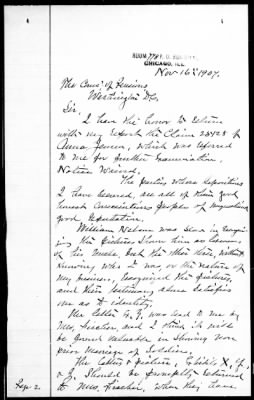 ROOM 778 P. O. BUILDING
CHICAGO, ILL.
Nov 16th 1907.
The Com'r of Pensions
Washington D.C.
Sir,
I have the honor to return
with my report the Claim of
Anna, which was referred
to me for further examination.
Notice Waived.
The parties whose depositions
I have secured, are all of them good
honest conscientious people of
good reputation.
William Nelson was slow in recogniz-
ing the pictures shown him as
of his uncle, but the other, without
knowing who I was, or the nature of
my business, recognized the pictures,
and their testimony alone satisfies
me as to identity.
The letter was lent to me by
Mrs. and I think it will
be found valuable in showing
prior marriage of Soldier.
The letter & picture, Exhibits X, Y,
& Z. should be promptly returned
to Mrs., when they have
Page 2.